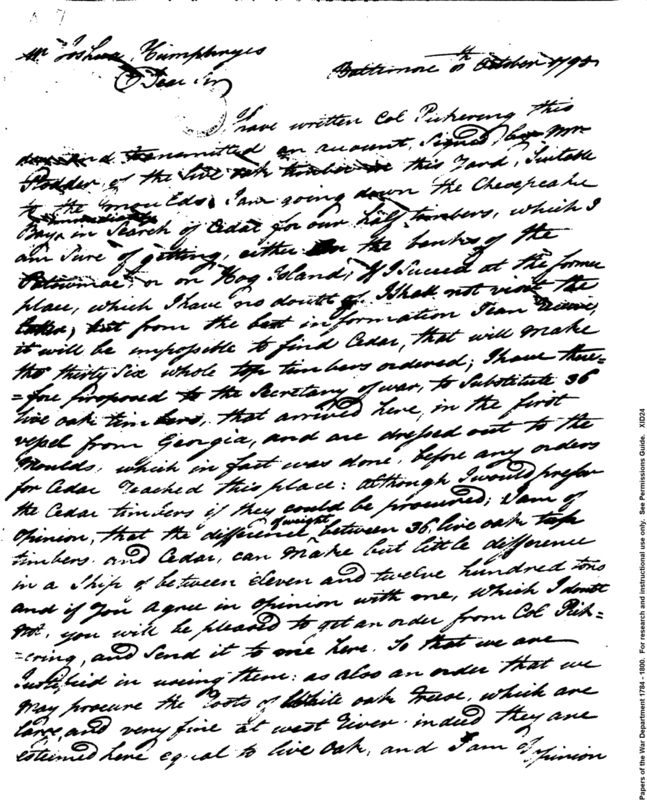 Mr Joshua Humphreys
Baltimore 8th October 1795
Dear Sir
I have written Col Pickering this
and transmitted an account, Signed by Mr
Stodder of the live oak timber in this Yard, Suitable
to the Moulds, I am going down the Chesepeake
Bay, in Search of Cedar for our half timbers, which I
am Sure of getting, either on the banks of the
Potowmac or on Hog Island, If I Succeed at the former
place, which I have no doubt of I shall not visit the
latter, but from the best information I can
it will be impossible to find Cedar, that will make
the thirty Six whole top timbers ordered; I have there=
=fore proposed to the Secretary of war, to Substitute 36
live oak timbers, that arrived here, in the first
vessel from Georgia, and are dressed out to the
Moulds, which in fact was done, before any orders
for Cedar reached this place: although I would prefer
the Cedar timbers if they could be procured; I am of
Opinion, that the difference of weight between 36, live oak top
timbers and Cedar, can make but little difference
in a Ship of between Eleven and twelve hundred tons
and if you agree in opinion with me, which I doubt
not, you will be pleased to get an order from Col Pick=
=ering, and Send it to me here. So that we are
Justified in using them: as also an order that we
may procure the roots of White oak trees, which are
large, and very fine at west River indeed they are
esteemed here equal to live oak, and I am of opinion
Papers of the War Department 1784 - 1800. For research and instructional use only. See Permissions Guide. XID24